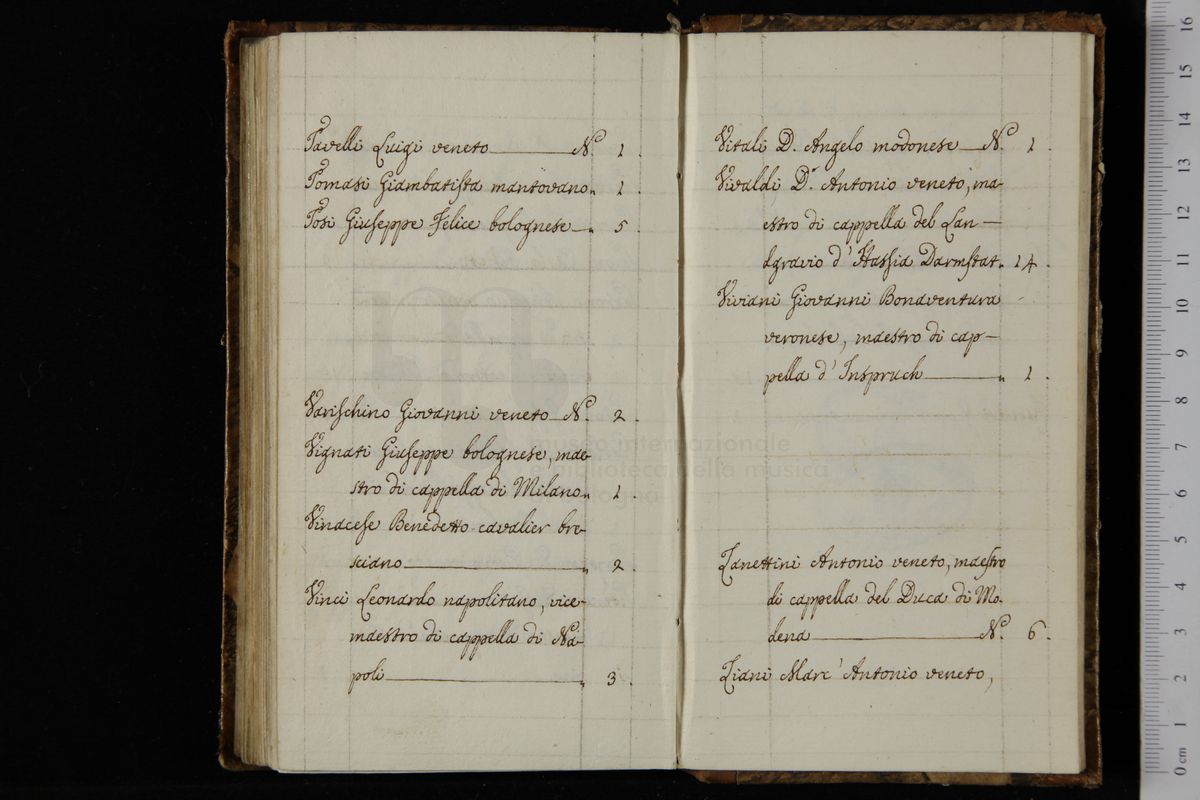 Tavelli Luigi veneto N.º 1.
Tomasi Giambatista mantovano „ 1.
Tosi Giuseppe Felice bolognese „ 5.
Varischino Giovanni veneto N.º 2.
Vignati Giuseppe bolognese, mae-
stro di cappella di Milano „ 1.
Vinacese Benedetto cavalier bre-
sciano „ 2.
Vinci Leonardo napolitano, vice-
maestro di cappella di Na-
poli „ 3.
Vitali D. Angelo modonese N.º 1.
Vivaldi D. Antonio veneto, ma-
estro di cappella del Lan-
dgravio d'Hassia Darmstat. 14.
Viviani Giovanni Bonaventura
veronese, maestro di cap-
pella d'Inspruch „ 1.
Zanettini Antonio veneto, maestro
di cappella del Duca di Mo-
dena N.º 6.
Ziani Marc'Antonio veneto,
museo internazionale
e biblioteca della musica
16
15
14
13
12
11
10
9
8
7
6
5
4
3
2
1
0 cm